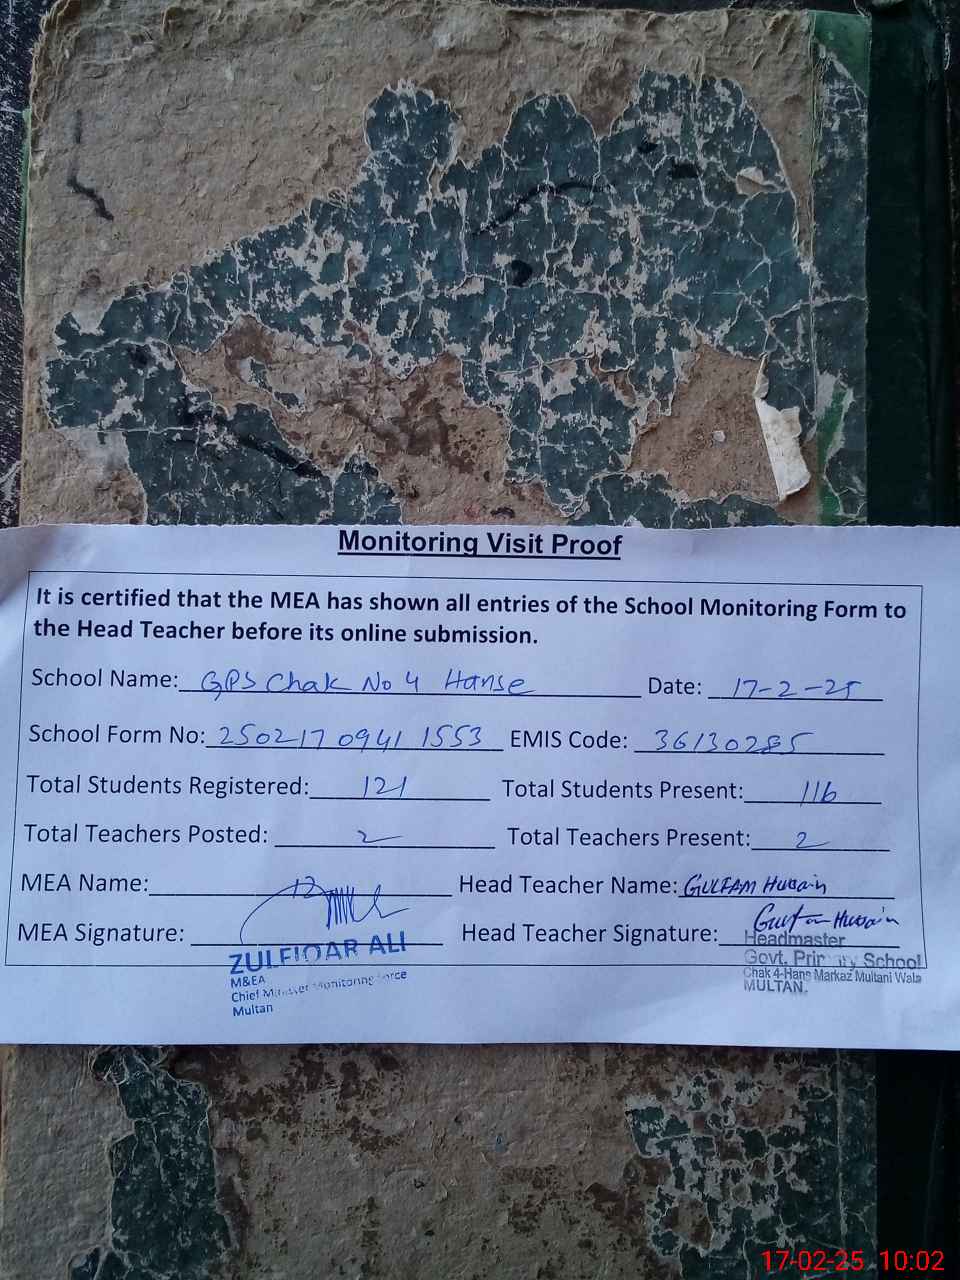 Monitoring Visit Proof
It is certified that the MEA has shown all entries of the School Monitoring Form to
the Head Teacher before its online submission.
School Name: GPS Chak No 4 Hanse Date: 17-2-25
School Form No: 250217 0941 1553 EMIS Code: 36130285
Total Students Registered: 121 Total Students Present: 116
Total Teachers Posted: 2 Total Teachers Present: 2
MEA Name: Head Teacher Name: GULFAM Hussain
MEA Signature: Head Teacher Signature:
ZULFIQAR ALI
M&EA
Chief Minister Monitoring Force
Multan
Headmaster
Govt. Primary School
Chak 4-Hans Markaz Multani Wala
MULTAN.
17-02-25 10:02